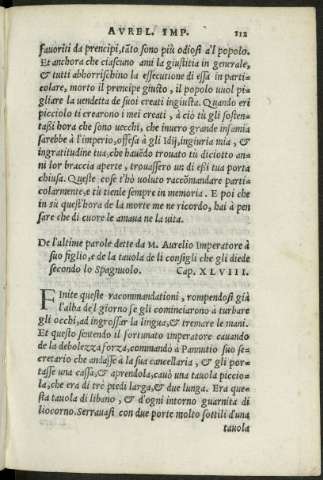 AVREL. IMP. 112
favoriti da prencipi, tāto sono più odiosi a'l popolo.
Et anchora che ciascuno ami la giustitia in generale,
& tutti abborrischino la essecutione di essa in parti=
colare, morto il prencipe giusto, il popolo vuol pi=
gliare la vendetta de suoi creati ingiusta. Quando eri
picciolo ti crearono i mei creati, à ciò tù gli sosten-
tassi hora che sono vecchi, che invero grande infamia
sarebbe à l'imperio, offesa à gli Idij, ingiuria mia, &
ingratitudine tua, che havēdo trovato tù diciotto an=
ni lor braccia aperte, trovassero un dì essi tua porta
chiusa. Queste cose t'hò voluto raccōmandare parti=
colarmente, e tù tienle sempre in memoria. E poi che
in sù quest'hora de la morte me ne ricordo, hai à pen
sare che di cuore le amava ne la vita.
De l'ultime parole dette da M. Aurelio Imperatore à
suo figlio, e de la tavola de li consigli che gli diede
secondo lo Spagnuolo. Cap. XLVIII.
Finite queste racommandationi, rompendosi già
l'alba del giorno se gli cominciarono à turbare
gli occhi, ad ingrossar la lingua, & tremare le mani.
Et questo sentendo il fortunato imperatore cavando
de la debolezza forza, commandò a Pannutio suo se=
cretario che andasse à la sua cancellaria, & gli por=
tasse una cassa, & aprendola, cavò una tavola piccio=
la, che era di trè piedi larga, & due lunga. Era que=
sta tavola di libano, & d'ogni intorno guarnita di
liocorno. Serravasi con due porte molto sottili d'una
tavola